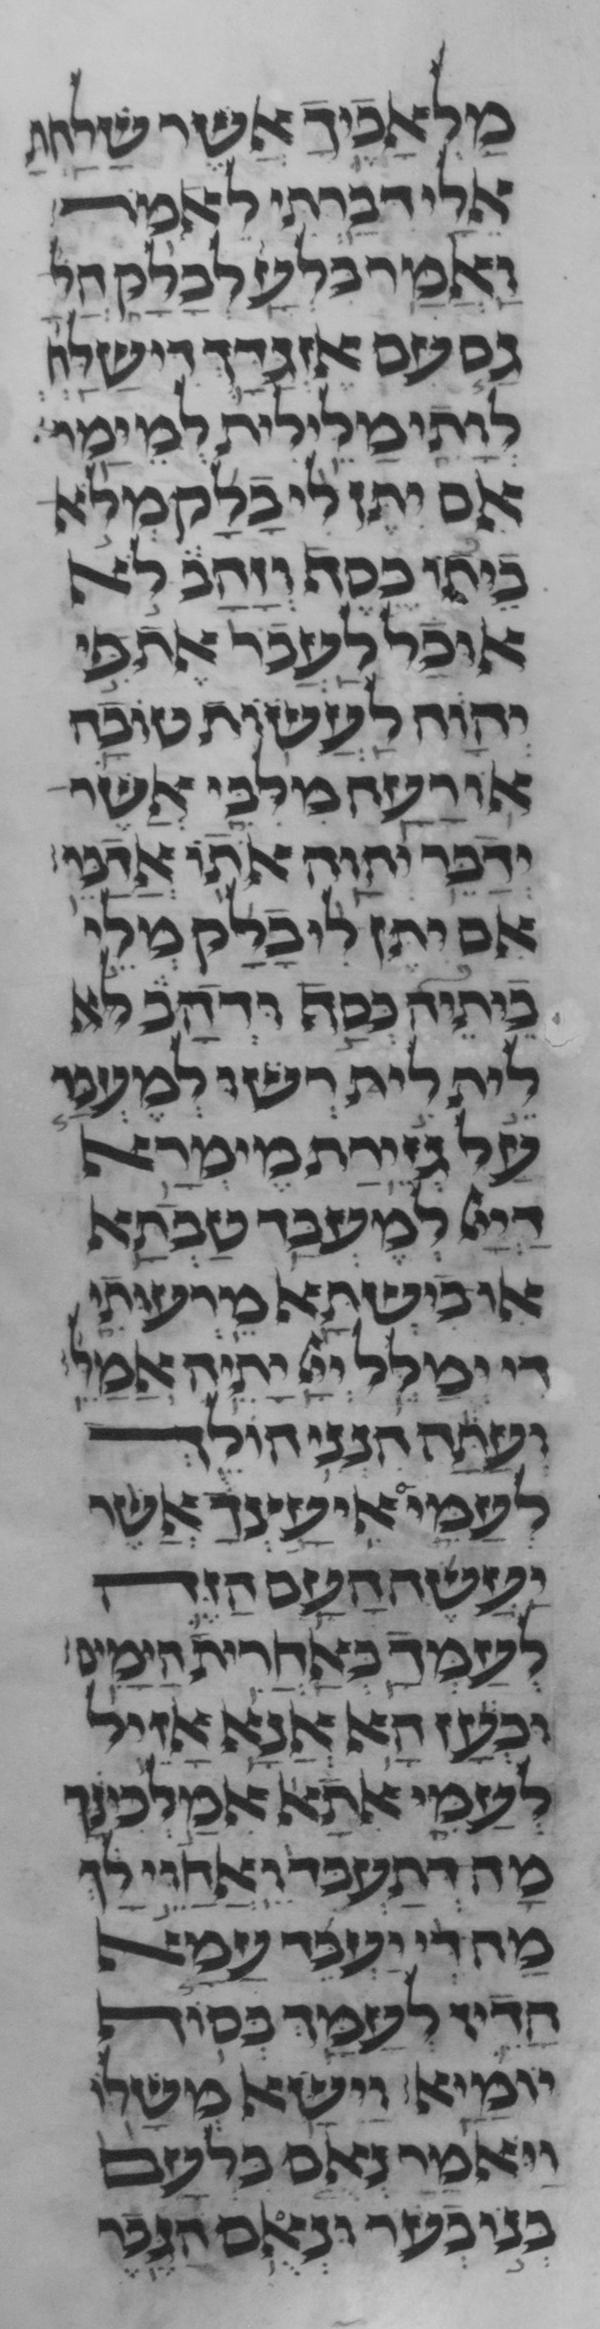 מַלְאָכֶיךָ אֲשֶׁר שָׁלַחְתָּ
אֵלַי דִּבַּרְתִּי לֵאמֹר׃
וַאֲמַר בִּלְעָ לְבָלָק הֲלָ
גַם עִם אִזְגַּדָּךְ דִּי שְׁלַחְתְּ
לְוָתִי מַלֵּילִית לְמֵימָר׃
אִם יִתֶּן לִי בָלָק מְלֹא
בֵיתוֹ כֶּסֶף וְזָהָב לֹא
אוּכַל לַעֲבֹר אֶת פִּי
יְהוָה לַעֲשׂוֹת טוֹבָה
אוֹ רָעָה מִלִּבִּי אֲשֶׁר
יְדַבֵּר יְהוָה אֹתוֹ אֲדַבֵּר׃
אִם יִתֶּן לִי בָּלָק מְלֵי
בֵיתֵיהּ כְּסַף וּדְהַב לָא
לֵית לִית רְשׁוּ לְמֶעְבַּר
עַל גְּזֵירַת מֵימְרָא
דַיְיָ לְמֶעְבַּד טָבְתָא
אוֹ בִישְׁתָא מֵרְעוּתִי
דִּי יְמַלֵּל יְיָ יָתֵיהּ אֲמַלֵּל׃
וְעַתָּה הִנְנִי הוֹלֵךְ
לְעַמִּי אִיעָצְךָ אֲשֶׁר
יַעֲשֶׂה הָעָם הַזֶּה
לְעַמְּךָ בְּאַחֲרִית הַיָּמִים׃
וּכְעַן הָא אֲנָא אָזֵיל
לְעַמִּי אִתָא אֲמַלְּכִנָּךְ
מָה דְתַעְבֵּד וַאֲחַוֵּי לָךְ
מַה דִּי יַעְבֵּד עַמָּא
הָדֵין לְעַמָּךְ בְּסוֹף
יוֹמַיָּא׃ וַיִּשָּׂא מְשָׁלוֹ
וַיֹּאמַר נְאֻם בִּלְעָם
בְּנוֹ בְעֹר וּנְאֻם הַגֶּבֶר